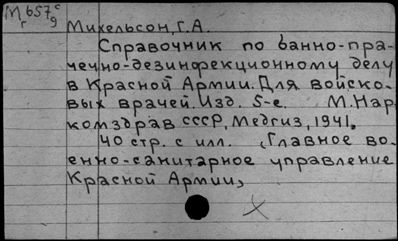 М657с
г 9
Михельсон, Г.А.
Справочник по банно-пра-
чечно-дезинфекционному делу
в Красной Армии. Для войско-
вых врачей. Изд. 5-е. М. Нар
комздрав СССР, Медгиз, 1941.
40 стр. с илл. (Главное во-
енно-санитарное управление
Красной Армии)